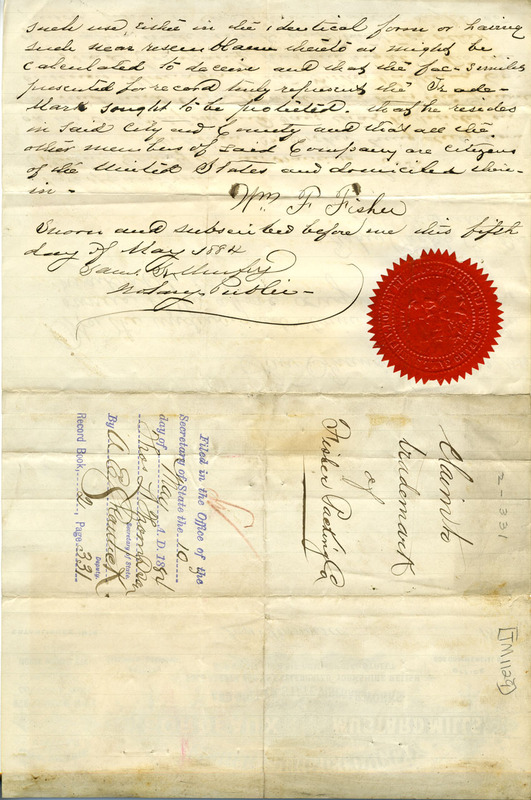 such use, either in the identical form or having
such near resemblance thereto as might be
calculated to deceive and that the fac-similes
presented for record truly represent the Trade-
Mark sought to be protected. that he resides
in said City and County and that all the
other members of said Company are citizens
of the United States and domiciled there-
in -
Wm. F. Fisher
Sworn and subscribed before me this fifth
day of May 1884
Saml. Murfey
Notary Public -
Claim to
trademark
of
Fisher Packing Co
Filed in the Office of the
Secretary of State the 10
day of May A. D. 1884
Thos L Thompson
Secretary of State.
By A. E. Shattuck
Deputy.
Record Book, 2, Page 331
2-331
[TM1129]